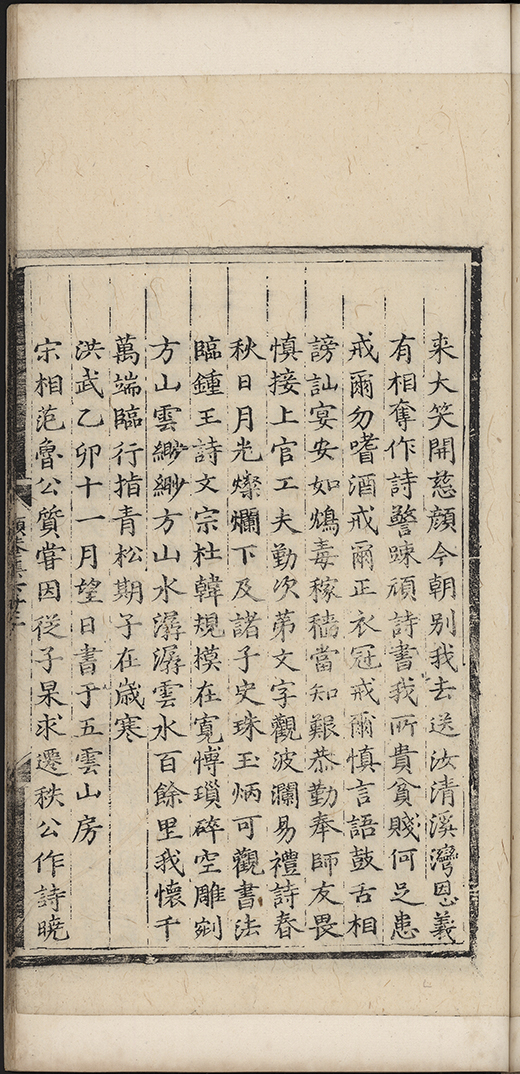 来大笑開慈顔今朝别我去送汝清溪灣恩義
有相奪作詩警踈頑詩書我所貴貧賤何足患
戒爾勿嗜酒戒爾正衣冠戒爾慎言語鼓舌相
謗訕宴安如鴆毒稼穡當知艱恭勤奉師友畏
慎接上官工夫勤次第文字觀波瀾易禮詩春
秋日月光燦爛下及諸子史珠玉炳可觀書法
臨鍾王詩文宗杜韓規模在寛愽瑣碎空雕剜
方山雲緲緲方山水潺潺雲水百餘里我懷千
萬端臨行指青松期子在歲寒
洪武乙卯十一月望日書于五雲山房
宋相范魯公質嘗因從子杲求遷秩公作詩曉